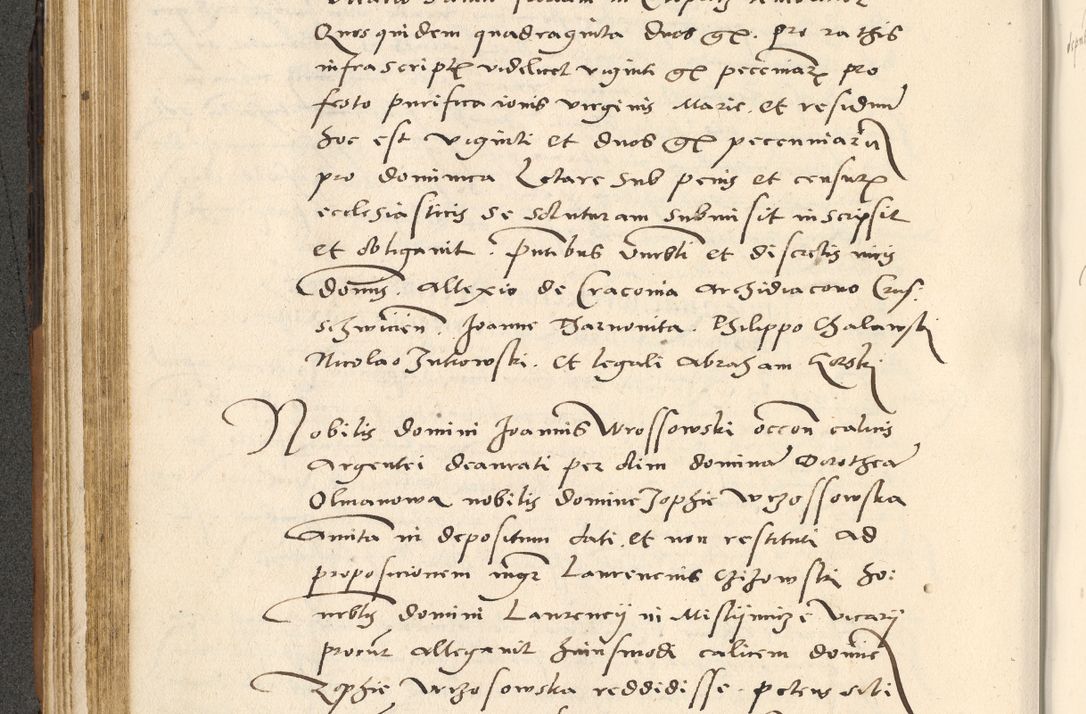 Quos quidem quadraginta duos gr. pro rathis
infrascriptis videlicet viginti gr peccuniarz pro
festo purificacionis virginis Marie. et residuu
hoc est viginti et duos gr peccuniaru
pro dominica Letare sub penis et censuris
ecclesiasticis se soluturam submisit inscripsit
et obligavit. Pntibus vnrbli et discretis viris
domis. Allexio de Craconia Archidiacono Crus:
schwicien. Joanne Tharnovita. Philippo Chalawski
Nicolao Zukowski. et legali Abraham Gorski
Nobilis domini Joannis Wrossowski occon calicis
Argentei deaurati per olim domina Dorothea
Olmanowa nobilis domine Zophie Wrzossowska
Amita in depositum dati. et non restituti ad
proposicionem mgr Laurencius Czizowski ho:
nrblis domini Laurencij in Mistijmicze vicarij
procur allegavit huiusmodi calicem domine
Zophie Wrzosowska reddidisse. petens